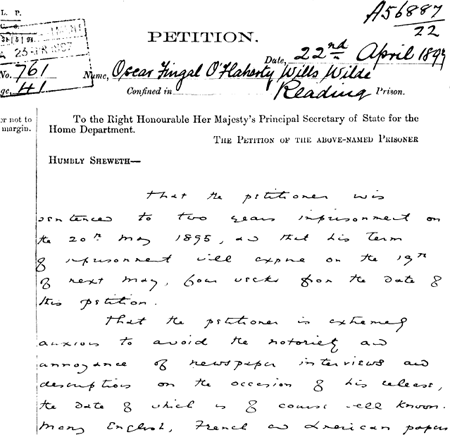 L. P.
A56887
22
25 APR 1897
PETITION.
Date, 22nd April 1897
No. 761
Name, Oscar Fingal O'Flaherty Wills Wilde
ge, 41
Confined in Reading Prison.
er not to
margin.
To the Right Honourable Her Majesty's Principal Secretary of State for the
Home Department.
THE PETITION OF THE ABOVE-NAMED PRISONER
HUMBLY SHEWETH—
That the petitioner was
sentenced to two years imprisonment on
the 20th May 1895, and that his term
of imprisonment will expire on the 19th
of next May, four weeks from the date of
this petition.
That the petitioner is extremely
anxious to avoid the notoriety and
annoyance of newspaper interviews and
descriptions on the occasion of his release,
the date of which is of course well known.
Many English, French and American papers